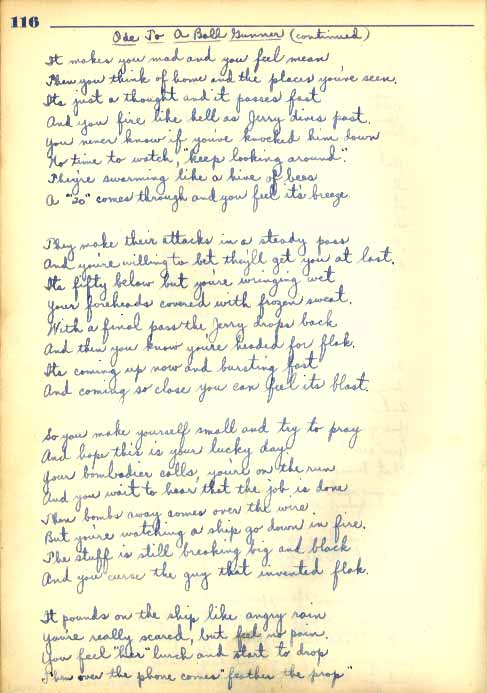 116
Ode To A Ball Gunner (continued)
It makes you mad and you feel mean
Then you think of home and the places you've seen.
Its just a thought and it passes fast
And you fire like hell as Jerry dives past.
You never know if you've knocked him down
No time to watch, "keep looking around".
They're swarming like a hive of bees
A "20" comes through and you feel it's breeze
They make their attacks in a steady pass
And you're willing to bet they'll get you at last.
Its fifty below but you're wringing wet
Your foreheads covered with frozen sweat.
With a final pass the Jerry drops back
And then you know you're headed for flak.
Its coming up now and bursting fast
And coming so close you can feel its blast.
So you make yourself small and try to pray
And hope this is your lucky day.
Your bombadier calls, youre on the run
And you wait to hear that the job is done
Then bombs away comes over the wire.
But you're watching a ship go down in fire.
The stuff is still breaking big and black
And you curse the guy that invented flak.
It pounds on the ship like angry rain
You're really scared, but feel no pain.
You feel "her" lurch and start to drop
Then over the phone comes "feather the prop"